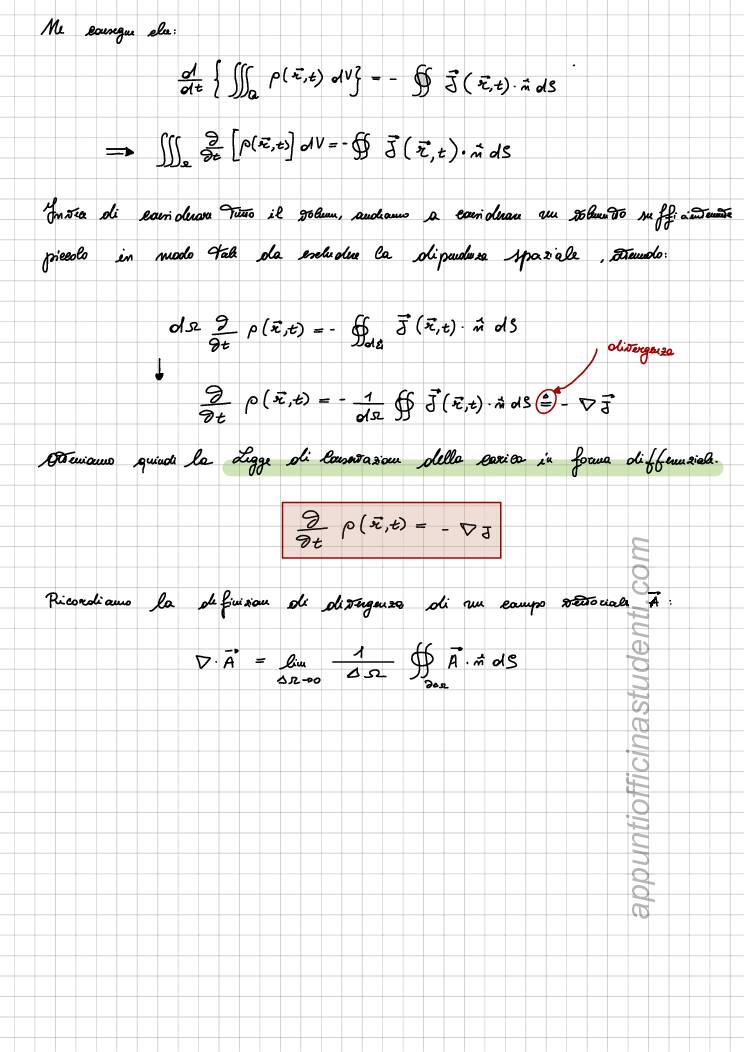 Ne consegue che:
d/dt { ∭_Ω ρ(r⃗,t) dV } = - ∯ J⃗(r⃗,t)·n̂ dS
⟹ ∭_Ω ∂/∂t [ρ(r⃗,t)] dV = - ∯ J⃗(r⃗,t)·n̂ dS
Invece di considerare tutto il volume, andiamo a considerare un volumetto sufficientemente
piccolo in modo tale da escludere la dipendenza spaziale, ottenendo:
dΩ ∂/∂t ρ(r⃗,t) = - ∯_dΩ J⃗(r⃗,t)·n̂ dS
divergenza
↓
∂/∂t ρ(r⃗,t) = - 1/dΩ ∯ J⃗(r⃗,t)·n̂ dS ≜ - ∇J⃗
Otteniamo quindi la Legge di Conservazione della carica in forma differenziale.
∂/∂t ρ(r⃗,t) = - ∇J
Ricordiamo la definizione di divergenza di un campo vettoriale A⃗:
∇·A⃗ = lim_ΔΩ→0 1/ΔΩ ∯_∂ΔΩ A⃗·n̂ dS
appuntiofficinastudenti.com